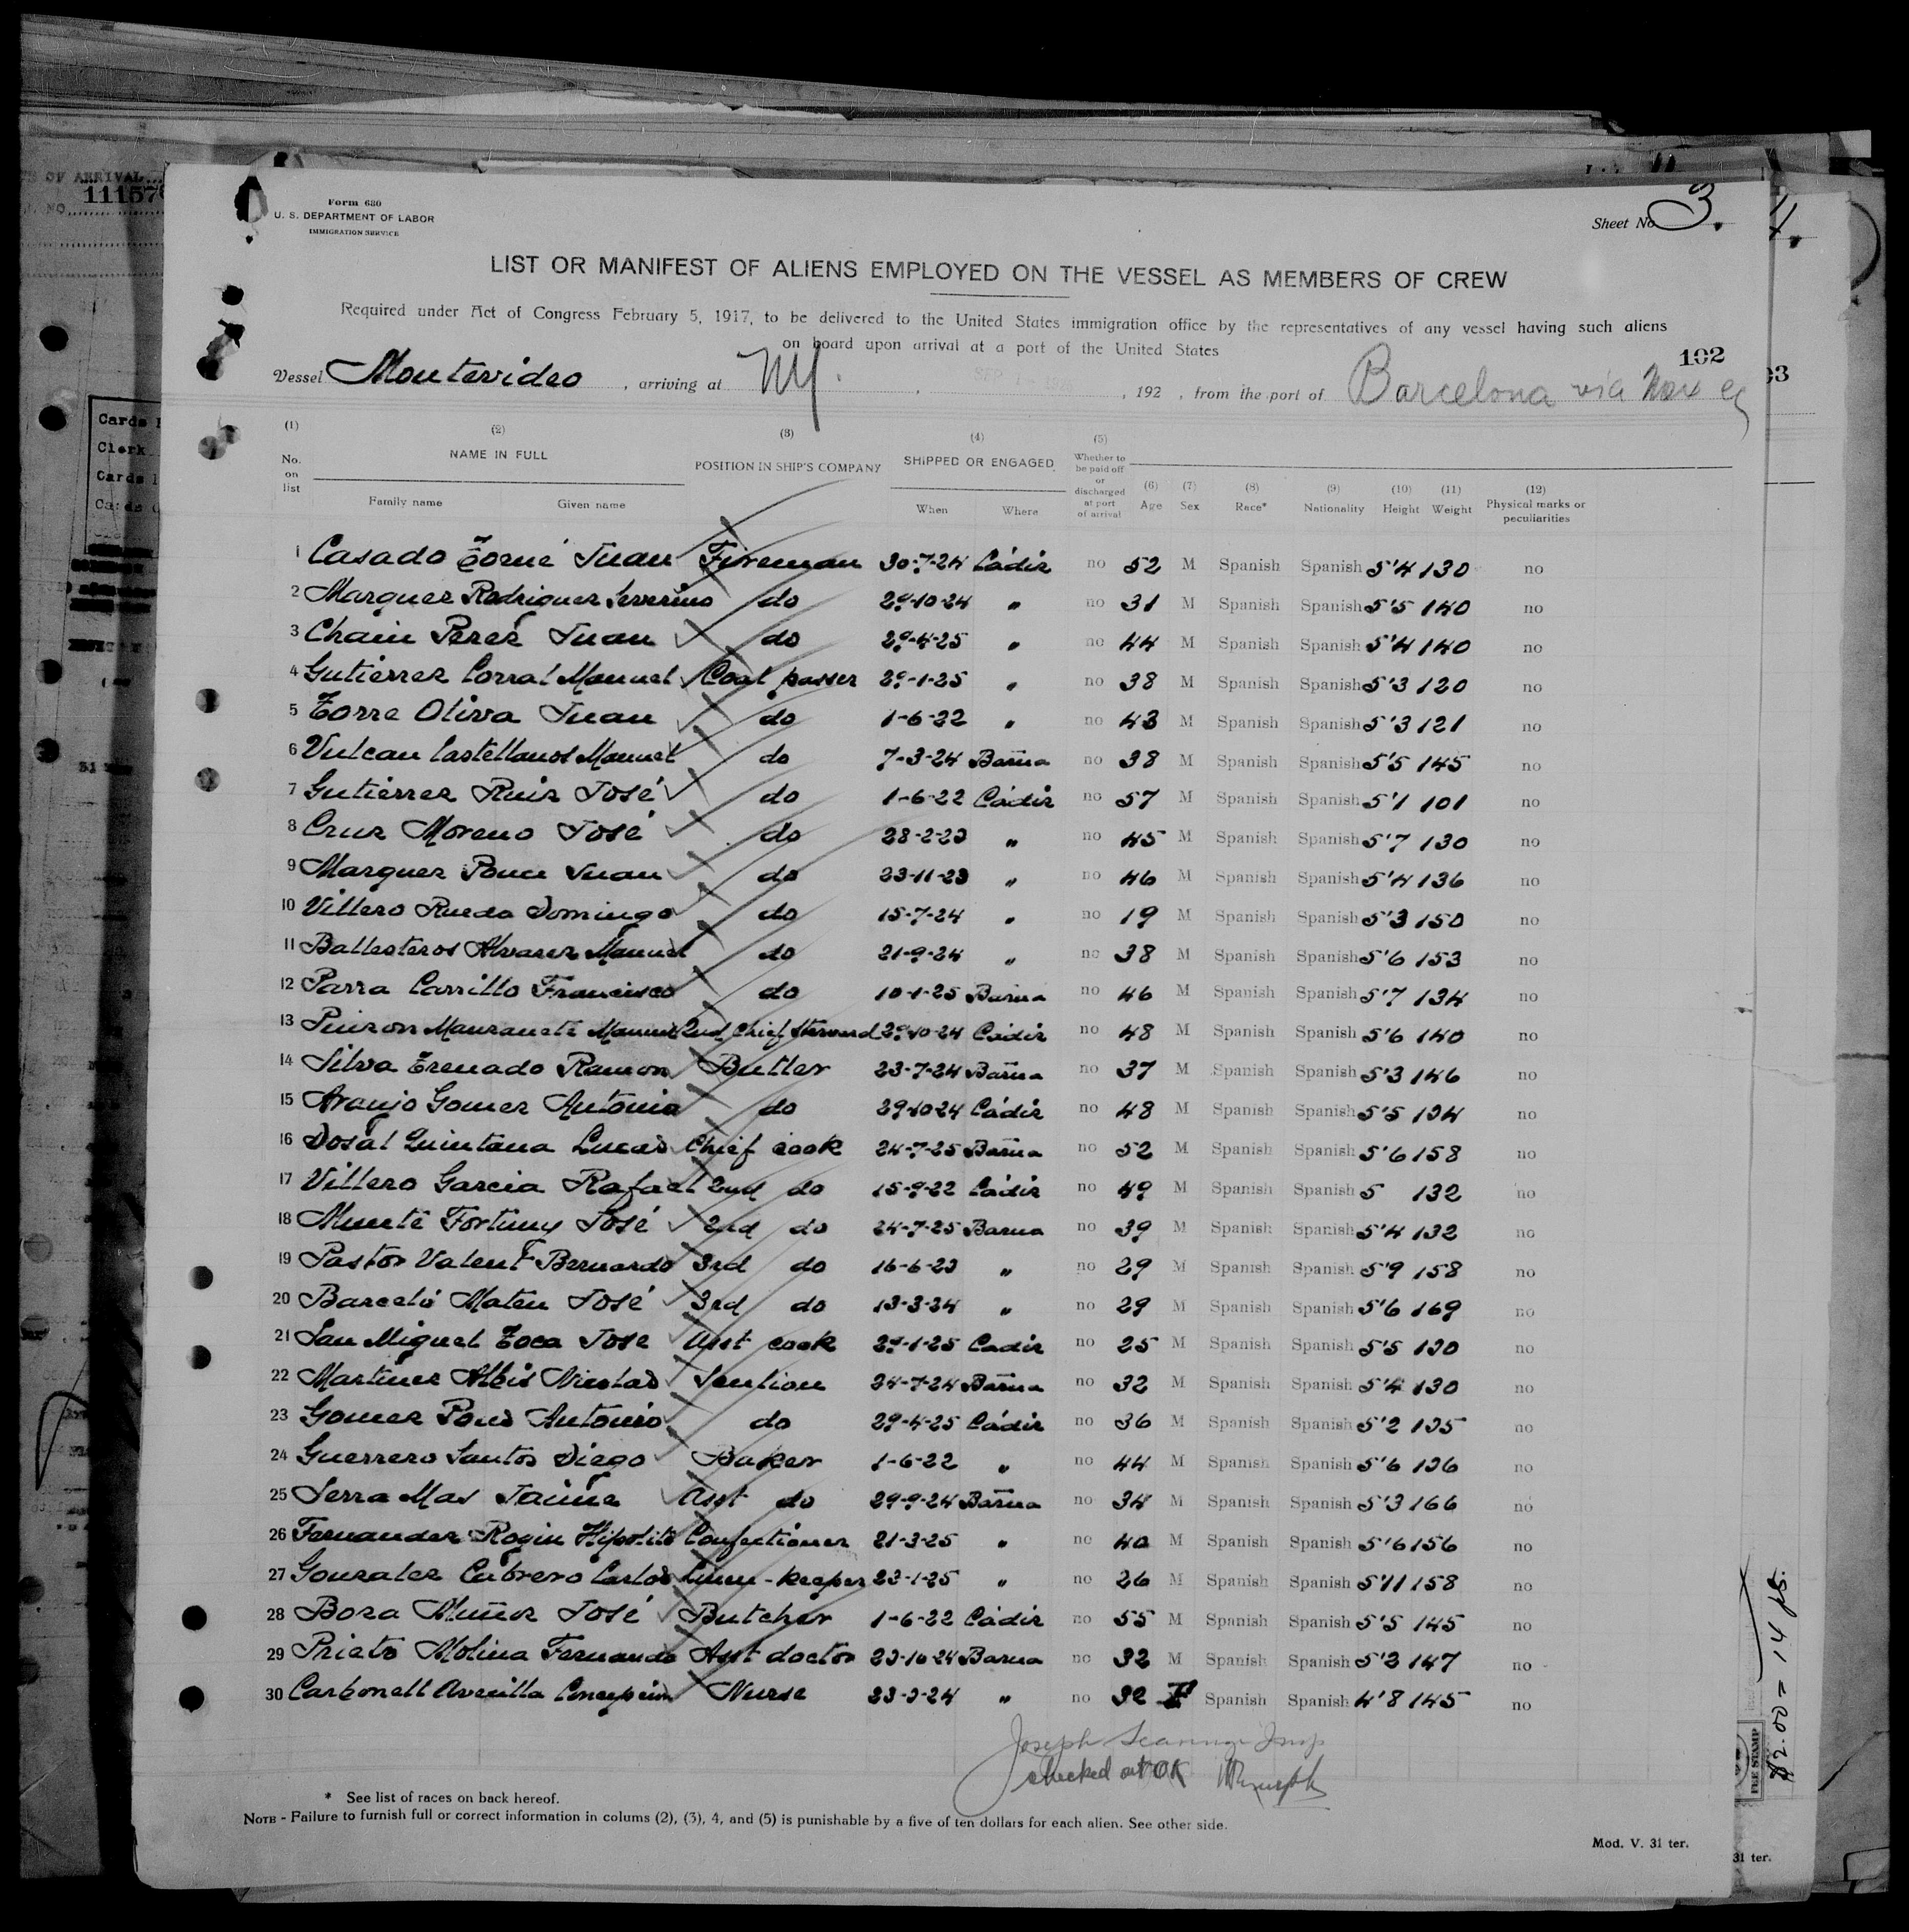 OF ARRIVAL
NO. 11157
Form 680
U. S. DEPARTMENT OF LABOR
IMMIGRATION SERVICE
Sheet No 3.
LIST OR MANIFEST OF ALIENS EMPLOYED ON THE VESSEL AS MEMBERS OF CREW
Required under Act of Congress February 5, 1917, to be delivered to the United States immigration office by the representatives of any vessel having such aliens
on board upon arrival at a port of the United States
102
Vessel Montevideo, arriving at NY. , 192 , from the port of Barcelona via
(1) (2) (3) (4) (5)
No. on list NAME IN FULL POSITION IN SHIP'S COMPANY SHIPPED OR ENGAGED Whether to be paid off or discharged at port of arrival (6) Age (7) Sex (8) Race* (9) Nationality (10) Height (11) Weight (12) Physical marks or peculiarities
Family name Given name When Where
1 Casado Torné Juan Fireman 30-7-24 Cádiz no 52 M Spanish Spanish 5'4 130 no
2 Marquez Rodriguez Severino do 29-10-24 " no 31 M Spanish Spanish 5'5 140 no
3 Chain Perez Juan do 29-4-25 " no 44 M Spanish Spanish 5'4 140 no
4 Gutierrez Corral Manuel Coal passer 29-1-25 " no 38 M Spanish Spanish 5'3 120 no
5 Torre Oliva Juan do 1-6-22 " no 43 M Spanish Spanish 5'3 121 no
6 Vulcan Castellanos Manuel do 7-3-24 Barna no 38 M Spanish Spanish 5'5 145 no
7 Gutierrez Ruiz José do 1-6-22 Cádiz no 57 M Spanish Spanish 5'1 101 no
8 Cruz Moreno José do 28-2-23 " no 45 M Spanish Spanish 5'7 130 no
9 Marquez Ponce Juan do 23-11-23 " no 46 M Spanish Spanish 5'4 136 no
10 Villero Rueda Domingo do 15-7-24 " no 19 M Spanish Spanish 5'3 150 no
11 Ballesteros Alvarez Manuel do 21-9-24 " no 38 M Spanish Spanish 5'6 153 no
12 Parra Carrillo Francisco do 10-1-25 Barna no 46 M Spanish Spanish 5'7 134 no
13 Manzanete Manuel 2nd Chief Steward 29-10-24 Cádiz no 48 M Spanish Spanish 5'6 140 no
14 Silva Trenado Ramon Butler 23-7-24 Barna no 37 M Spanish Spanish 5'3 146 no
15 Araujo Gomez Antonio do 29-10-24 Cádiz no 48 M Spanish Spanish 5'5 134 no
16 Dosal Quintana Lucas Chief cook 24-7-25 Barna no 52 M Spanish Spanish 5'6 158 no
17 Villero Garcia Rafael 2nd do 15-9-22 Cádiz no 49 M Spanish Spanish 5 132 no
18 Munté Fortuny José 2nd do 24-7-25 Barna no 39 M Spanish Spanish 5'4 132 no
19 Pastor Valent Bernardo 3rd do 16-6-23 " no 29 M Spanish Spanish 5'9 158 no
20 Barceló Mateu José 3rd do 13-3-24 " no 29 M Spanish Spanish 5'6 169 no
21 San Miguel Toca Jose Asst cook 29-1-25 Cadiz no 25 M Spanish Spanish 5'5 130 no
22 Martinez Albis Nicolas 24-7-24 Barna no 32 M Spanish Spanish 5'4 130 no
23 Gomez Pons Antonio do 29-4-25 Cádiz no 36 M Spanish Spanish 5'2 135 no
24 Guerrero Santos Diego Baker 1-6-22 " no 44 M Spanish Spanish 5'6 136 no
25 Serra Mas Jaime Asst do 29-9-24 Barna no 34 M Spanish Spanish 5'3 166 no
26 Fernandez Rogin Hipolito Confectioner 21-3-25 " no 40 M Spanish Spanish 5'6 156 no
27 Gonzalez Cabrero Carlos Linen-keeper 23-1-25 " no 26 M Spanish Spanish 5'11 158 no
28 Boza Muñoz José Butcher 1-6-22 Cádiz no 55 M Spanish Spanish 5'5 145 no
29 Prieto Molina Fernando Asst doctor 23-10-24 Barna no 32 M Spanish Spanish 5'3 147 no
30 Carbonell Avecilla Concepcion Nurse 23-3-24 " no 32 F Spanish Spanish 4'8 145 no
Joseph Insp
checked out OK
* See list of races on back hereof.
NOTE - Failure to furnish full or correct information in colums (2), (3), 4, and (5) is punishable by a five of ten dollars for each alien. See other side.
Mod. V. 31 ter.
31 ter.
FEE STAMP